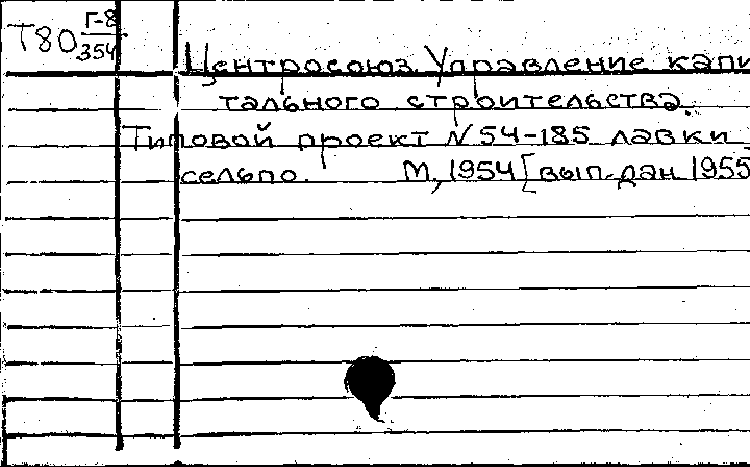 Т80 Г-8
354
Центросоюз. Управление капи
тального строительства.
Типовой проект N 54-185 лавки
сельпо. М, 1954 [вып. дан 1955